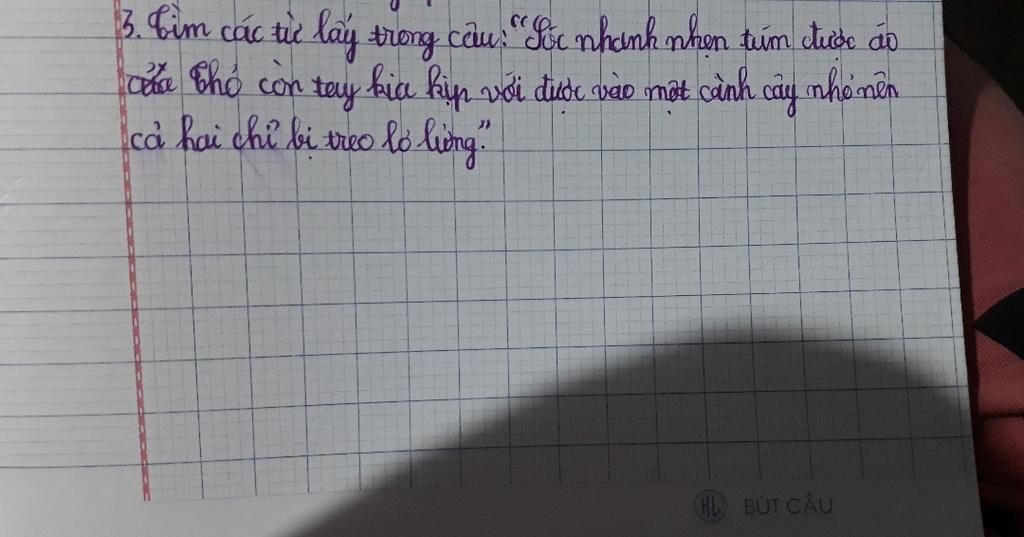 3. Tìm các từ láy trong câu: "Sóc nhanh nhẹn túm được áo
Thỏ còn tay kia kịp với được vào một cành cây nhỏ nên
cả hai chỉ bị treo lơ lửng."
HL BÚT CẦU